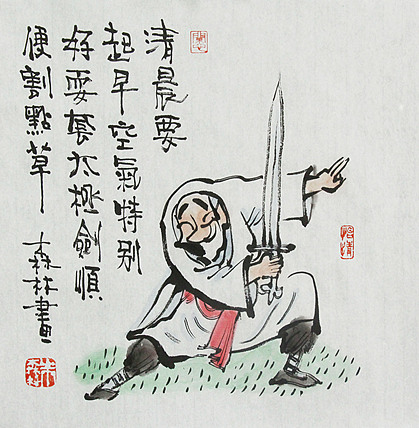 清晨要
起早空氣特别
好耍套太極劍順
便割點草
森林畫